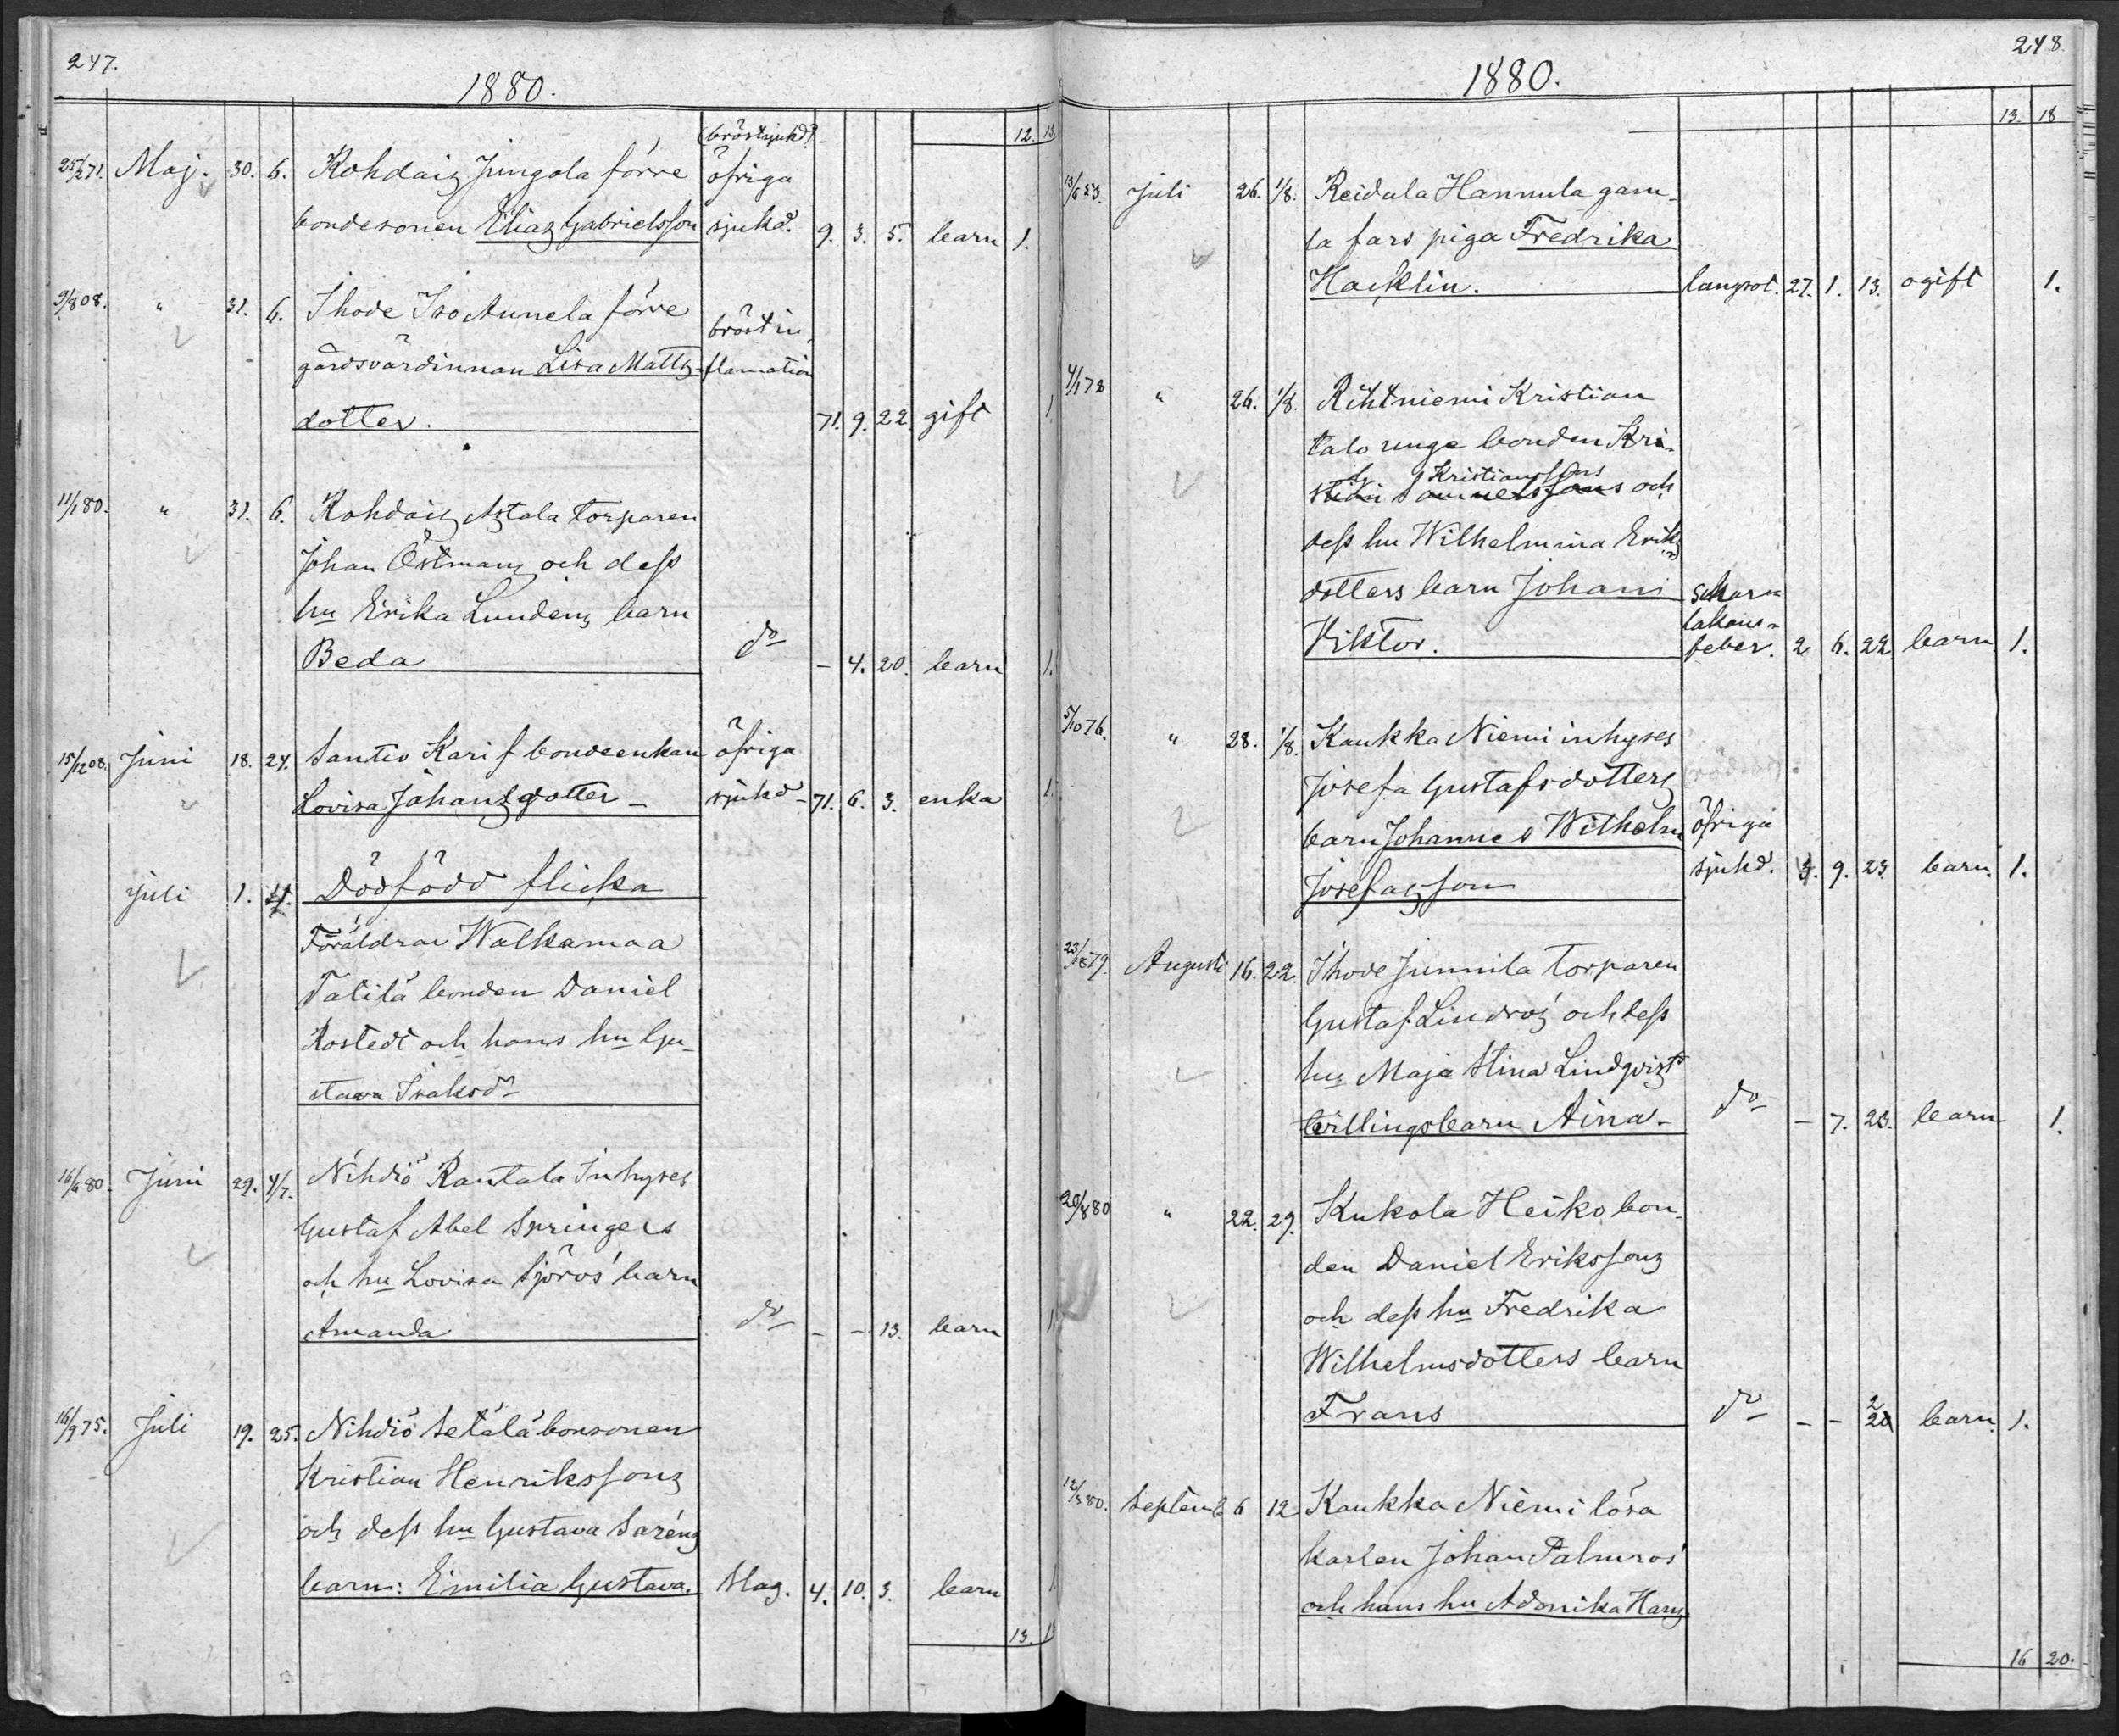 247.
1880.
12. 13.
(bröstsjukd?)
25/2 71. Maj. 30. 6. Kohdais Jungola förre öfriga
bondesonen Elias Gabrielsson sjukd. 9. 3. 5. barn 1.
9/8 08. " 31. 6. Ihode Iso Annela förre bröstin-
gårdsvärdinnan Lisa Matts- flamation
dotter. 71. 9. 22. gift 1
11/1 80. " 31. 6. Kohdais Astala torparen
Johan Östmans och dess
hu Erika Lundens barn
Beda do - 4. 20. barn 1.
15/12 08. Juni 18. 24. Santio Kari f bondeenkan öfriga
Lovisa Johansdotter - sjukd - 71. 6. 3. enka 1.
Juli 1. 4. Dödfödd flicka
Föräldrar Walkamaa
Talila bonden Daniel
Rostedt och hans hu Gu-
stava Isaksdr
16/6 80. Juni 29. 4/7. Nihdiö Rantala Inhyses
Gustaf Abel Springers
och hu Lovisa Sjöros' barn
Amanda do - - 13. barn 1.
16/9 75. Juli 19. 25. Nihdiö Setälä bonsonen
Kristian Henrikssons
och dess hu Gustava Saréns
barn: Emilia Gustava. Slag. 4. 10. 3. barn 1
13. 1
248.
1880.
13. 18
13/6 53. Juli 26. 1/8. Reidula Hannula gam-
la fars piga Fredrika
Hacklin. lungsot. 27. 1. 13. ogift 1.
4/1 78 " 26. 1/8. Rihtniemi Kristian
talo unge bonden Kri-
Kristianssons
och
dess hu Wilhelmina Eriks
dotters barn Johan schar=
lakans=
Viktor. feber. 2 6. 22. barn 1.
5/10 76. " 28. 1/8. Kaukka Niemi inhyses
Josefa Gustafsdotters
barn Johannes Wilhelm öfriga
Josefasson sjukd. 3. 9. 23. barn. 1.
23/18 79. Augusti 16. 22. Ihode Junnila torparen
Gustaf Lindros' och dess
hus Maja Stina Lindqvists
tvillingsbarn Aina - do - 7. 23. barn 1.
20/8 80 " 22. 29. Kukola Heiko bon-
den Daniel Erikssons
och dess hu Fredrika
Wilhelmsdotters barn
Frans do - - 2 barn. 1.
12/8 80. Septemb 6 12 Kaukka Niemi lösa
karlen Johan Palmros'
och hans hu Adonika Hans
16 20.